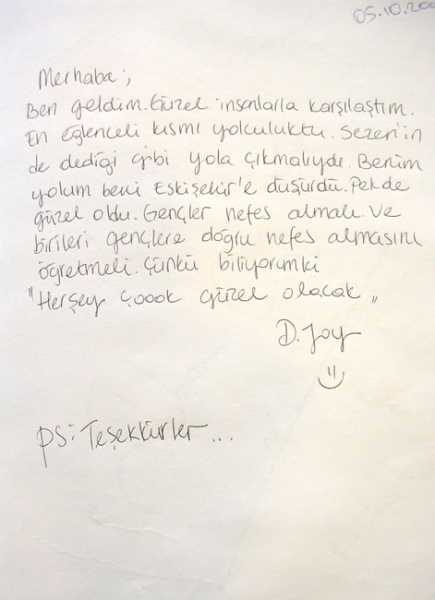 05.10.200
Merhaba;
Ben geldim. Güzel insanlarla karşılaştım.
En eğlenceli kısmı yolculuktu. Sezen'in
de dediği gibi yola çıkmalıydı. Benim
yolum beni Eskişehir'e düşürdü. Pek de
güzel oldu. Gençler nefes almalı. Ve
birileri gençlere doğru nefes almasını
öğretmeli. Çünkü biliyorumki
"Herşey çoook güzel olacak"
D. Joy
PS: Teşekkürler...